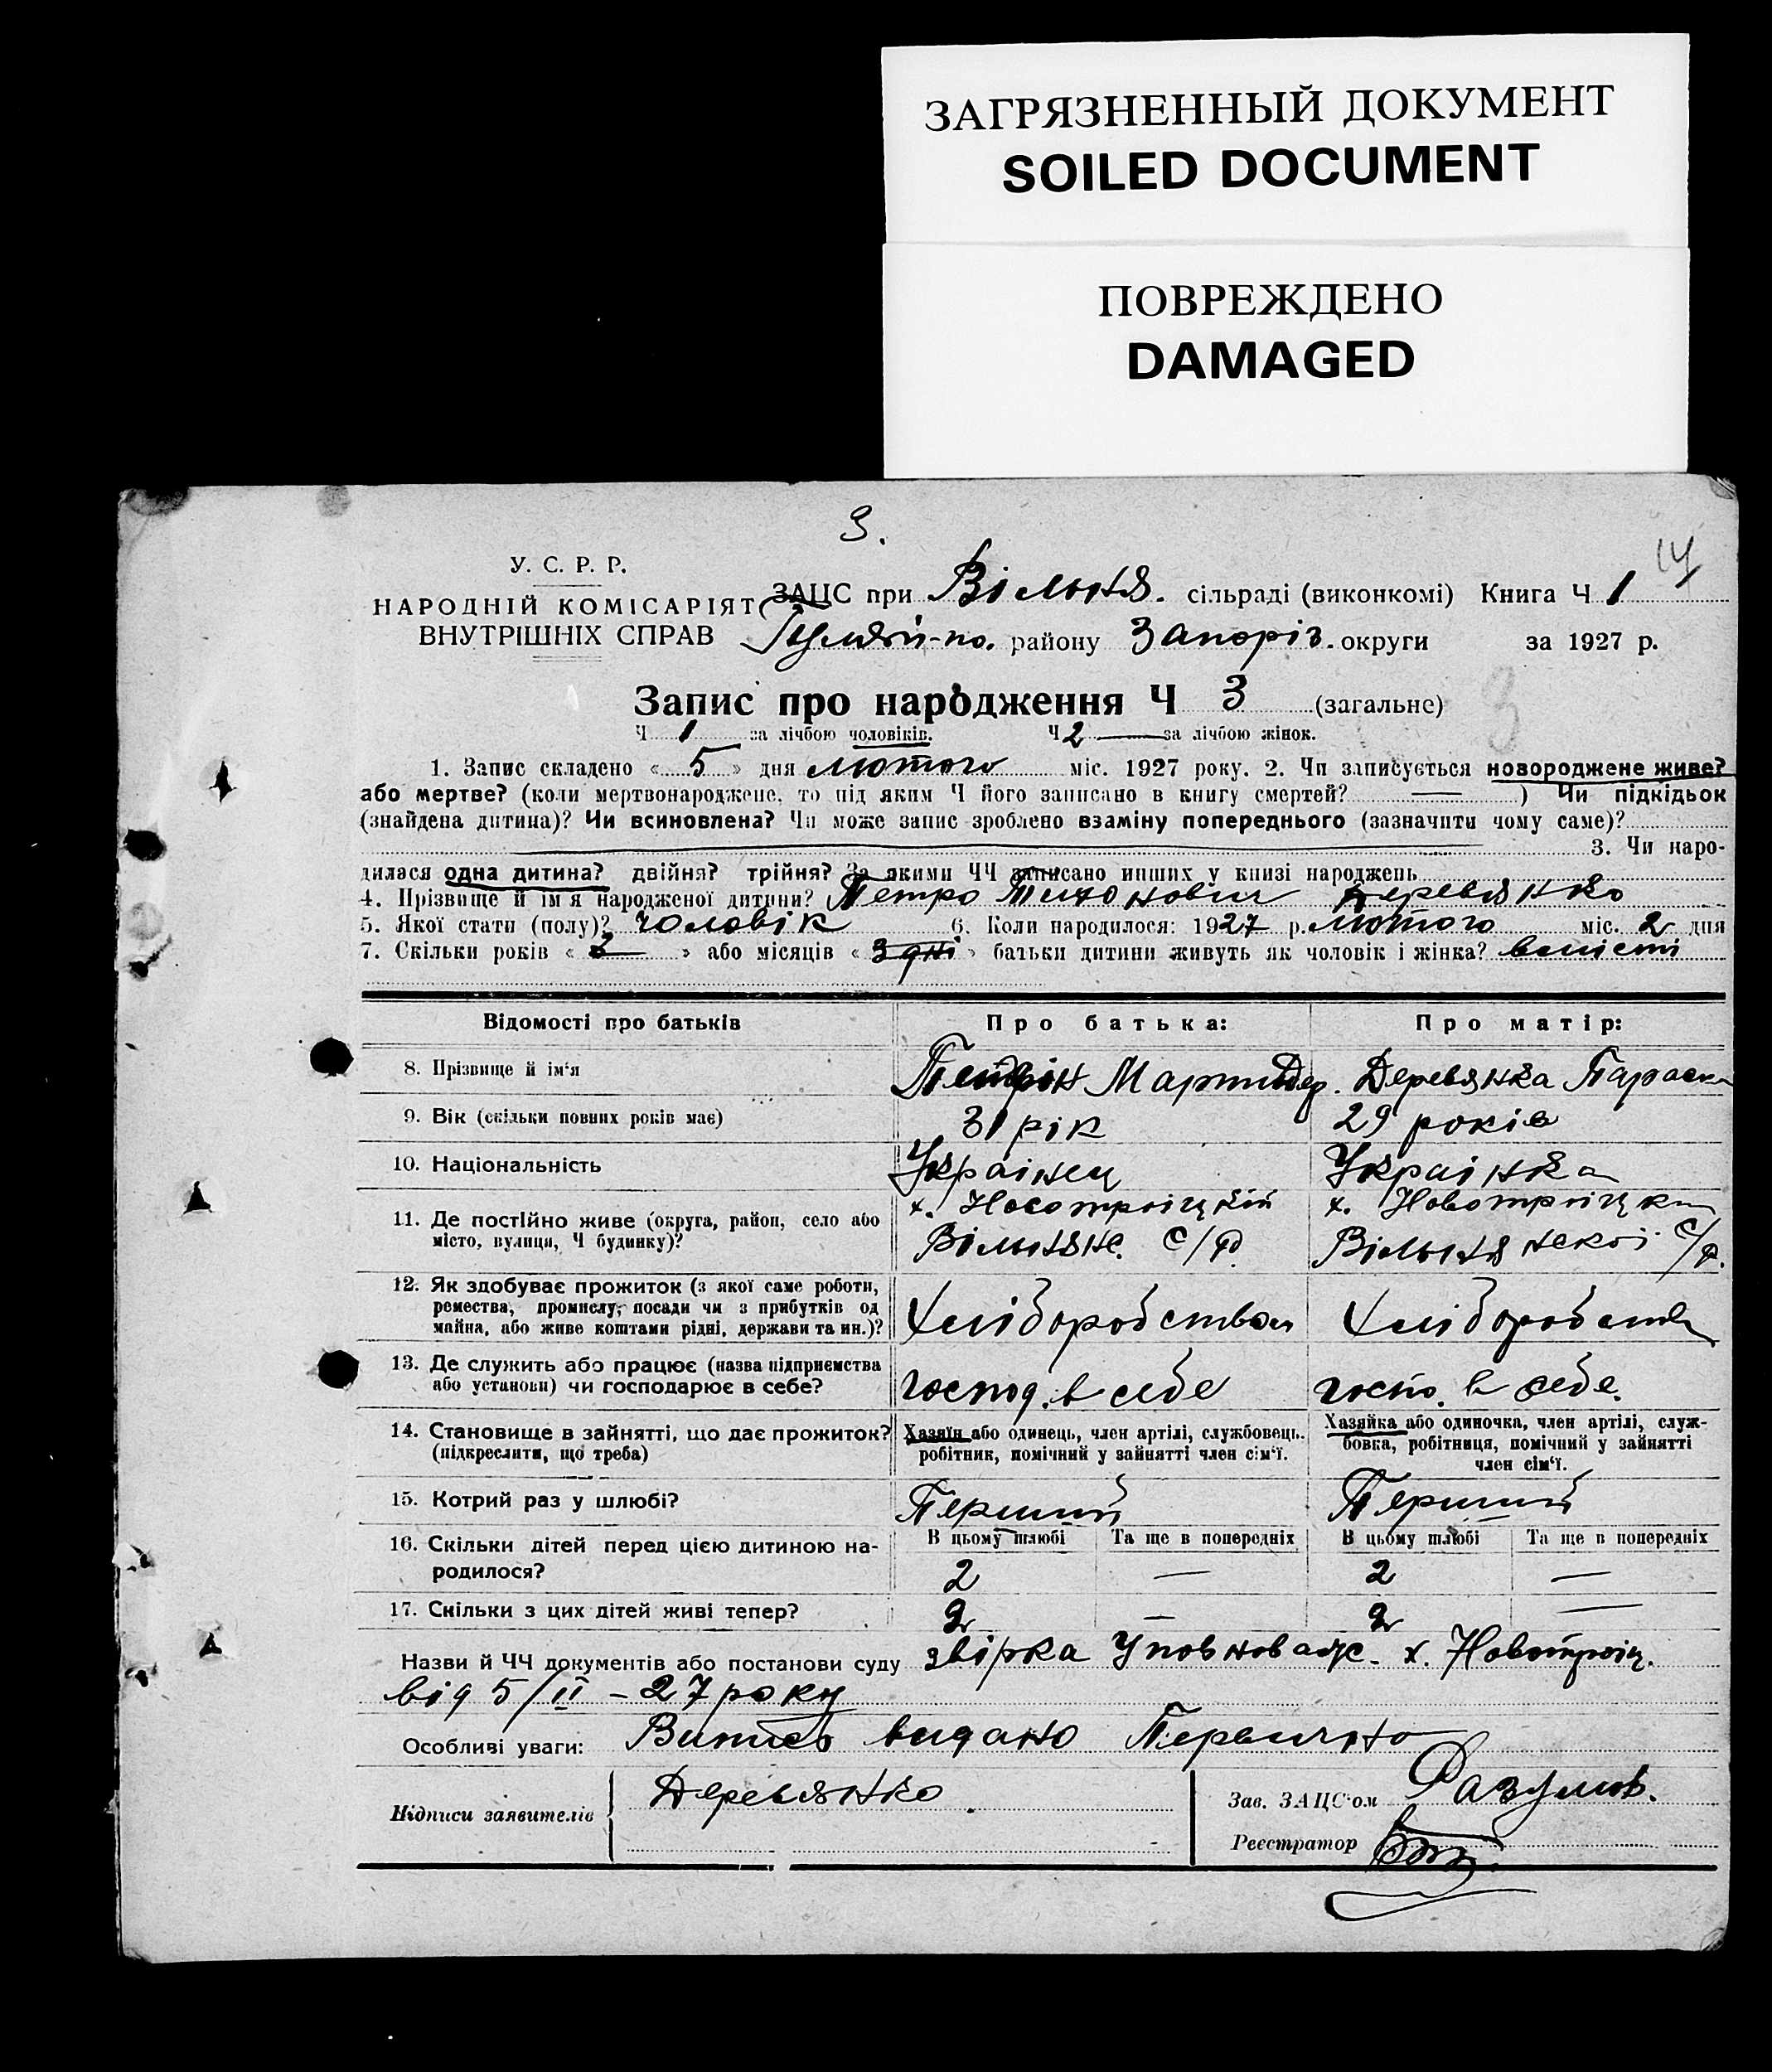 ЗАГРЯЗНЕННЫЙ ДОКУМЕНТ
SOILED DOCUMENT
ПОВРЕЖДЕНО
DAMAGED
3.
14
У. С. Р. Р.
НАРОДНІЙ КОМІСАРІЯТ
ВНУТРІШНІХ СПРАВ
ЗАЦС при Вільня. сільраді (виконкомі) Книга Ч 1
району Запоріз. округи за 1927 р.
Запис про народження Ч 3 (загальне)
3
Ч 1 за лічбою чоловіків. Ч 2 за лічбою жінок.
1. Запис складено « 5 » дня лютого міс. 1927 року. 2. Чи записується новороджене живе?
або мертве? (коли мертвонароджене, то під яким Ч його записано в книгу смертей? — ) Чи підкідьок
(знайдена дитина)? Чи всиновлена? Чи може запис зроблено взаміну попереднього (зазначити чому саме)?
3. Чи наро-
дилася одна дитина? двійня? трійня? За якими ЧЧ записано инших у книзі народжень
4. Прізвище й ім'я народженої дитини? Петро Деревянко
5. Якої стати (полу)? чоловік 6. Коли народилося: 1927 р. лютого міс. 2 дня
7. Скільки років « » або місяців « 3 дні » батьки дитини живуть як чоловік і жінка?
Відомості про батьків Про батька: Про матір:
8. Прізвище й ім‘я Дер. Деревянка Параска
9. Вік (скільки повних років має) 31 рік 29 років
10. Національність Українец Українка
11. Де постійно живе (округа, район, село або х. Новотроіцкій х. Новотроіцки
місто, вулиця, Ч будинку)? Вільнянс. С/р Вільнянскоі С/р.
12. Як здобуває прожиток (з якої саме роботи,
ремества, промислу, посади чи з прибутків од Хліборобством Хліборобств
майна, або живе коштами рідні, держави та ин.)?
13. Де служить або працює (назва підприємства
або установи) чи господарює в себе? господ. в себе госпо. в себе.
14. Становище в зайнятті, що дає прожиток? Хазяїн або одинець, член артілі, службовець. Хазяйка або одиночка, член артілі, служ-
(підкреслити, що треба) робітник, помічний у зайнятті член сім‘ї. бовка, робітниця, помічний у зайнятті
член сім‘ї.
15. Котрий раз у шлюбі? Перший Перший
16. Скільки дітей перед цією дитиною на- В цьому шлюбі Та ще в попередніх В цьому шлюбі Та ще в попередніх
родилося? 2 — 2 —
17. Скільки з цих дітей живі тепер? 2 — 2 —
Назви й ЧЧ документів або постанови суду звірка Уповноваж. х. Новотроіц.
від 5/II – 27 року
Особливі уваги: Витяг видано Первично
Підписи заявителів Деревянко Зав. ЗАЦС‘ом Разумов.
Реєстратор